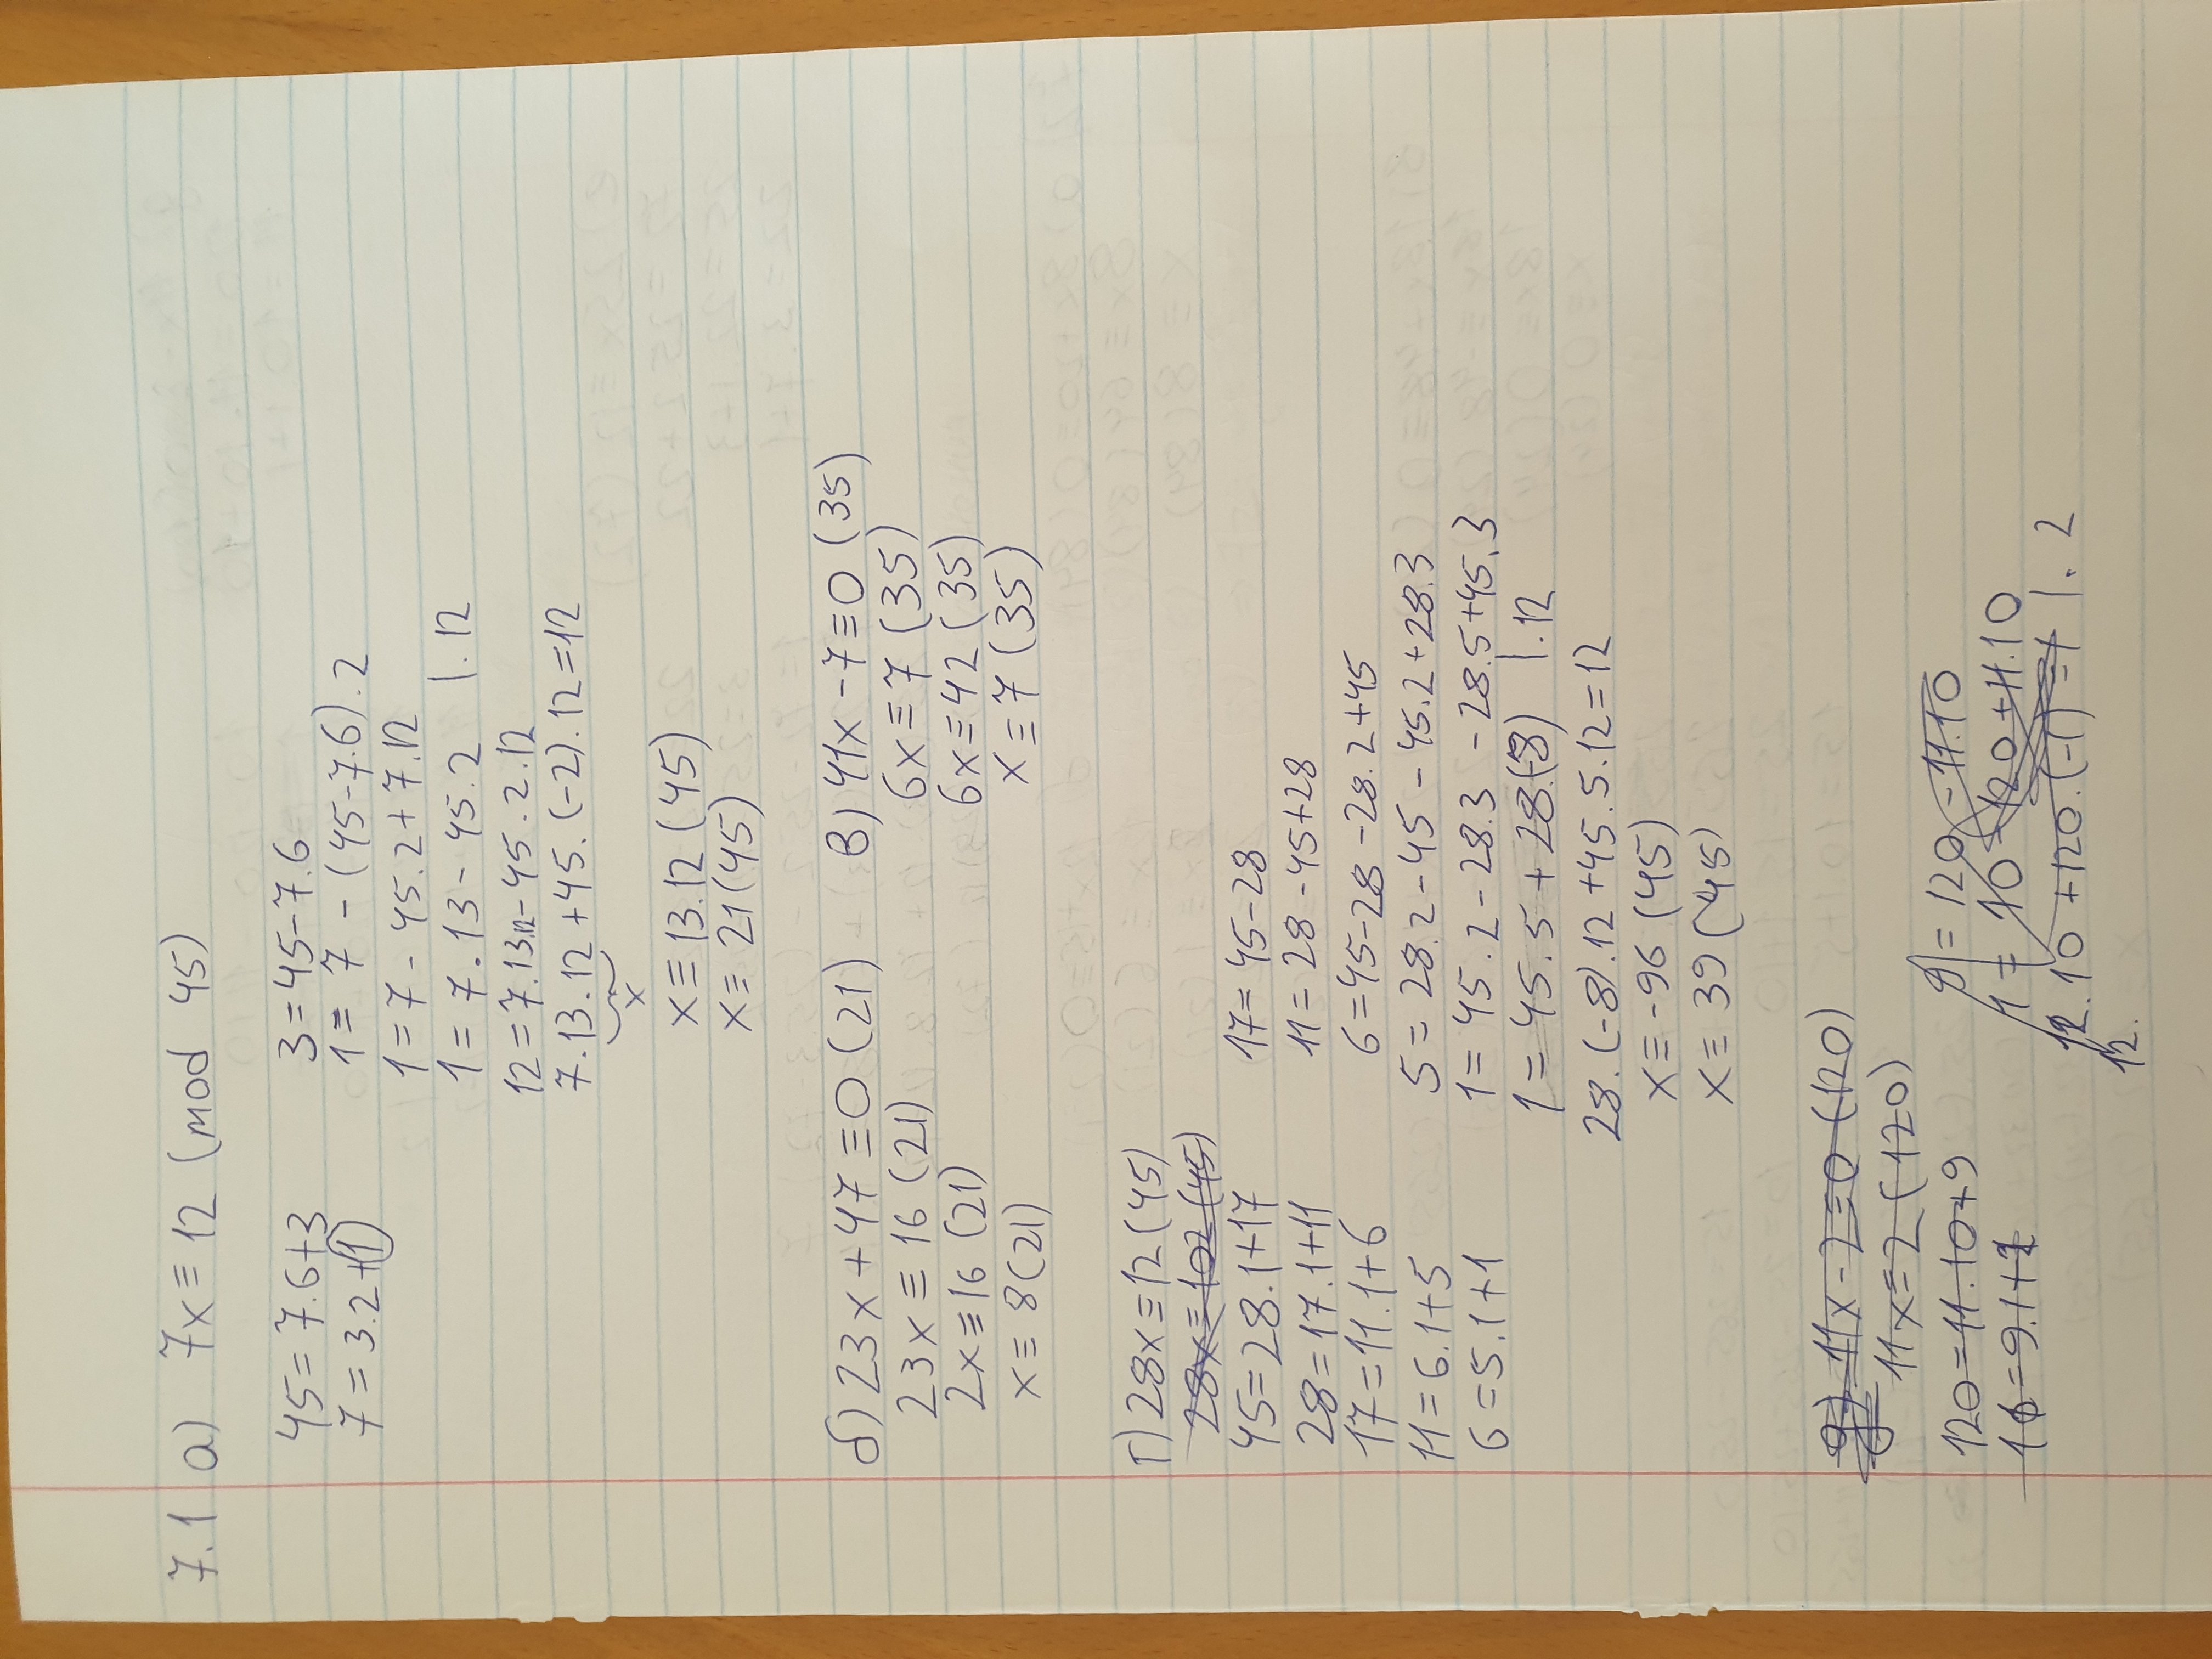 7.1 а) 7x ≡ 12 (mod 45)
45 = 7.6+3
7 = 3.2+1
3 = 45-7.6
1 = 7 - (45-7.6).2
1 = 7 - 45.2 + 7.12
1 = 7.13 - 45.2 |.12
12 = 7.13.12 - 45.2.12
7.13.12 + 45.(-2).12 = 12
x
x ≡ 13.12 (45)
x ≡ 21 (45)
б) 23x + 47 ≡ 0 (21)
23x ≡ 16 (21)
2x ≡ 16 (21)
x ≡ 8 (21)
в) 41x - 7 ≡ 0 (35)
6x ≡ 7 (35)
6x ≡ 42 (35)
x ≡ 7 (35)
г) 28x ≡ 12 (45)
28x ≡ 102 (45)
45 = 28.1+17
28 = 17.1+11
17 = 11.1+6
11 = 6.1+5
6 = 5.1+1
17 = 45-28
11 = 28-45+28
6 = 45-28-28.2+45
5 = 28.2-45-45.2+28.3
1 = 45.2-28.3-28.5+45.3
1 = 45.5+28.(-8) |.12
28.(-8).12+45.5.12 = 12
x ≡ -96 (45)
x ≡ 39 (45)
д) 11x-2 ≡ 0 (120)
11x ≡ 2 (120)
120 = 11.10+9
= 9.1+
= 120-11.10
1 = 10-120+11.10
.10+120.(-1) = 1 |.2
12.